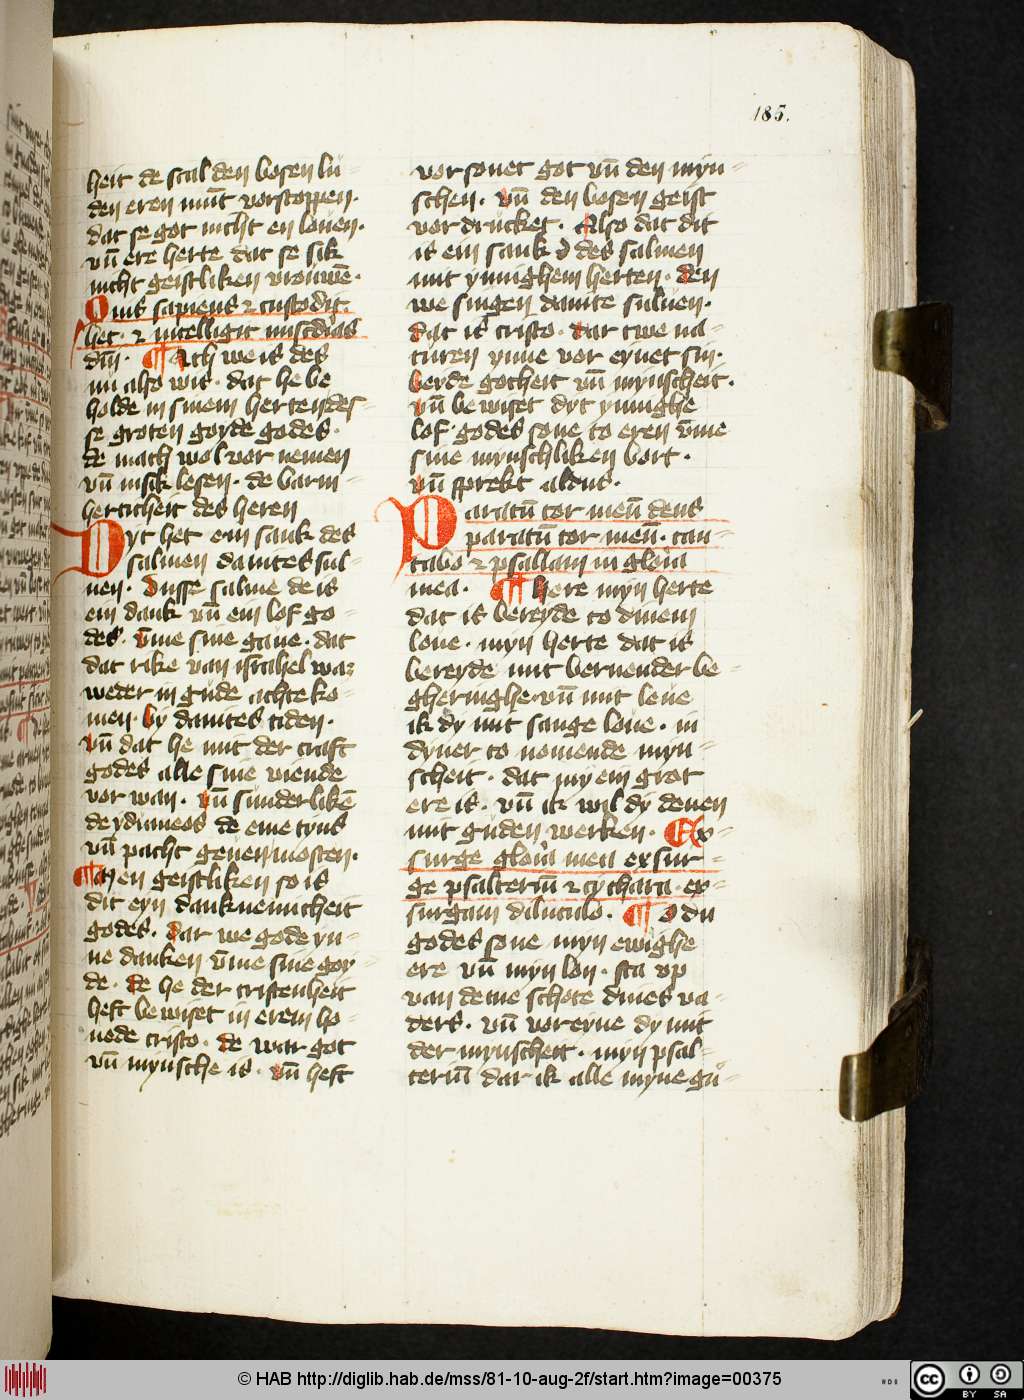 185.
heit de scal den bosen lu=
den eren mūt vorstoppen.
dat se got nicht en louen.
vn̄ ere herte dat se sik
nicht geistliken vrouwē.
Quis sapiens ⁊ custodit
hec. ⁊ intelligit misc̄dias
dn̄i. ¶ Ach we is des
nu also wis. dat he be
holde in sinem herten des=
se groten goyde godes.
de mach wol vor nemen
vn̄ in sik lesen. de barm=
herticheit des heren
Dyt het ein sank des
salmen dauites sul=
uen. Dusse salme de is
ein dank vn̄ ein lof go=
des. vm̄e sine gaue. dat
dat rike van israhel waz
weder in gude achte ko=
men. by dauites tiden.
vn̄ dat he mit der craft
godes alle sine viende
vor wan. vn̄ sunderlikē
de ydumeos de eme tyns
vn̄ pacht geuen mosten.
¶ In en geistliken so is
dit eyn danknemicheit
godes. dar we gode yn=
ne danken vm̄e sine goy=
de. de he der cristenheit
heft be wiset in erem ho=
uede cristo. de war got
vn̄ mynsche is. vn̄ heft
vor sonet got vn̄ den myn=
schen. vn̄ den bosen geist
vor drucket. Also dat dit
is ein sank des salmen
mit ynnighem herten. den
we singen dauite suluen.
dat is cristo. dar twe na=
turen ynne vor eynet sin.
beyde gotheit vn̄ mynscheit.
vn̄ be wiset dyt ynnighe
lof godes sone to eren vm̄e
sine mynschliken bort.
vn̄ sprekt aldus.
Paratū cor meū deus
paratū cor meū. can=
tabo ⁊ psallam in glor̄ia
mea. ¶ Here myn herte
dat is bereyde to dinem
loue. myn herte dat is
bereyde mit bernender be=
gheringhe vn̄ mit leue
ik dy mit sange loue. in
dyner to nomende myn=
scheit. dat my ein grot
ere is. vn̄ ik wil dy denen
mit guden werken. Ex=
surge glor̄ia mea exsur=
ge psalteriū ⁊ cythara. ex=
surgam diluculo. ¶ O du
godes sone myn ewighe
ere vn̄ myn lon. sta vp
van deme schote dines va=
ders. vn̄ voreyne dy mit
der mynscheit. myn psal=
teriū dar ik alle myne gu=
© HAB http://diglib.hab.de/mss/81-10-aug-2f/start.htm?image=00375
HAB
CC BY SA